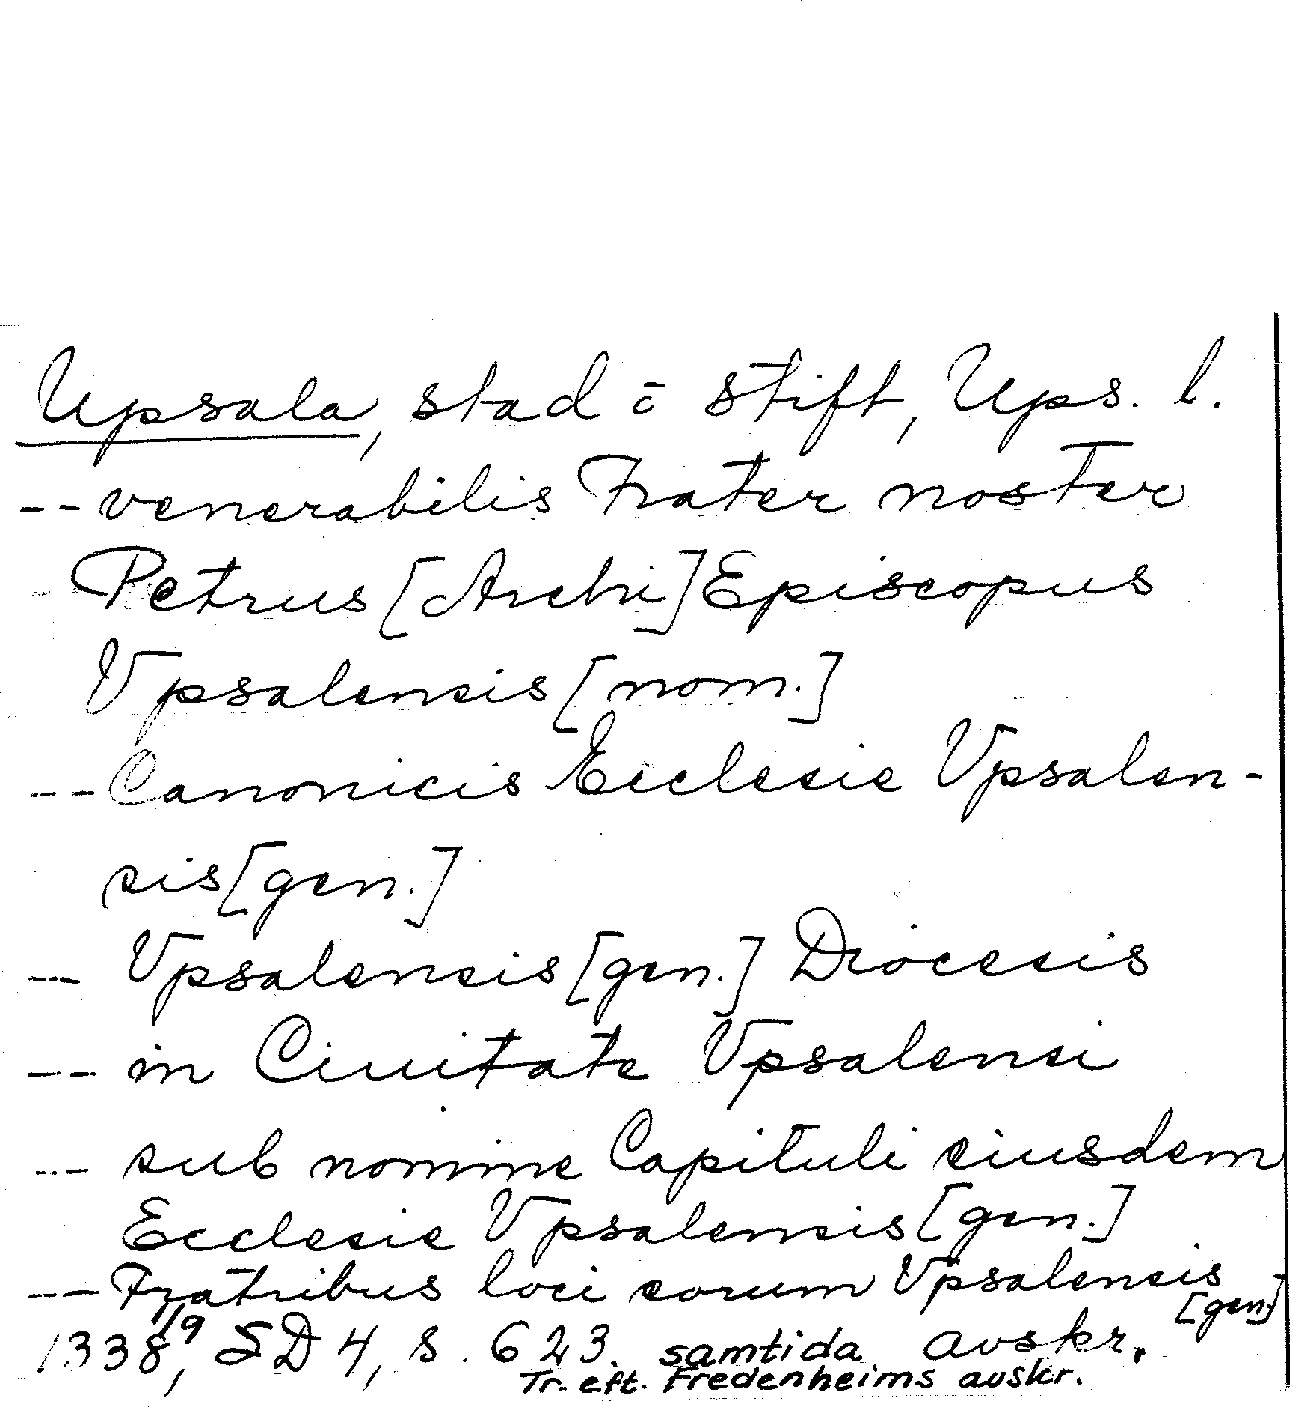 Upsala, stad o stift, Ups. l.
-- venerabilis Frater noster
Petrus [Archi]Episcopus
Vpsalensis [nom.]
-- Canonicis Ecclesie Vpsalen-
sis [gen.]
-- Vpsalensis [gen.] Diocesis
-- in Ciuitate Vpsalensi
-- sub nomine Capituli eiusdem
Ecclesie Vpsalensis [gen.]
-- Fratribus loci eorum Vpsalensis
[gen]
1338 1/9, SD 4, s. 623. samtida avskr.
Tr. eft. Fredenheims avskr.